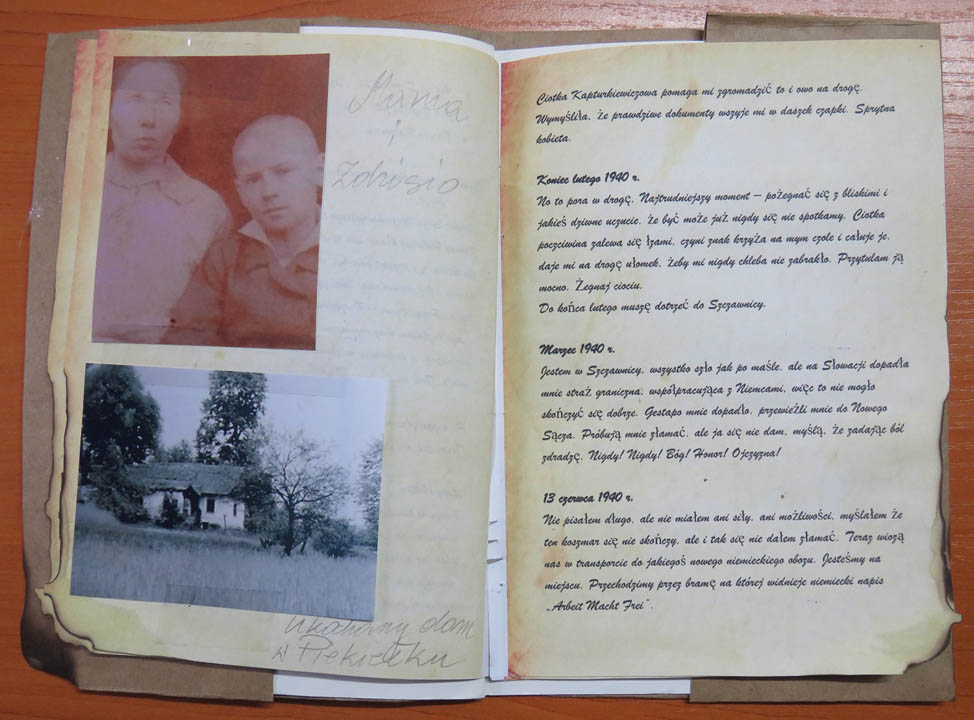 Mama
i
Zdzisio
Ukochany dom
w Piekiełku
Ciotka Kapturkiewiczowa pomaga mi zgromadzić to i owo na drogę.
Wymyśliła, że prawdziwe dokumenty wszyje mi w daszek czapki. Sprytna
kobieta.
Koniec lutego 1940 r.
No to pora w drogę. Najtrudniejszy moment – pożegnać się z bliskimi i
jakieś dziwne uczucie, że być może już nigdy się nie spotkamy. Ciotka
poczciwina zalewa się łzami, czyni znak krzyża na mym czole i całuje je,
daje mi na drogę ułomek, żeby mi nigdy chleba nie zabrakło. Przytulam ją
mocno. Żegnaj ciociu.
Do końca lutego muszę dotrzeć do Szczawnicy.
Marzec 1940 r.
Jestem w Szczawnicy, wszystko szło jak po maśle, ale na Słowacji dopadła
mnie straż graniczna, współpracująca z Niemcami, więc to nie mogło
skończyć się dobrze. Gestapo mnie dopadło, przewieźli mnie do Nowego
Sącza. Próbują mnie złamać, ale ja się nie dam, myślą, że zadając ból
zdradzę. Nigdy! Nigdy! Bóg! Honor! Ojczyzna!
13 czerwca 1940 r.
Nie pisałem długo, ale nie miałem ani siły, ani możliwości, myślałem że
ten koszmar się nie skończy, ale i tak się nie dałem złamać. Teraz wiozą
nas w transporcie do jakiegoś nowego niemieckiego obozu. Jesteśmy na
miejscu. Przechodzimy przez bramę na której widnieje niemiecki napis
„Arbeit Macht Frei”.